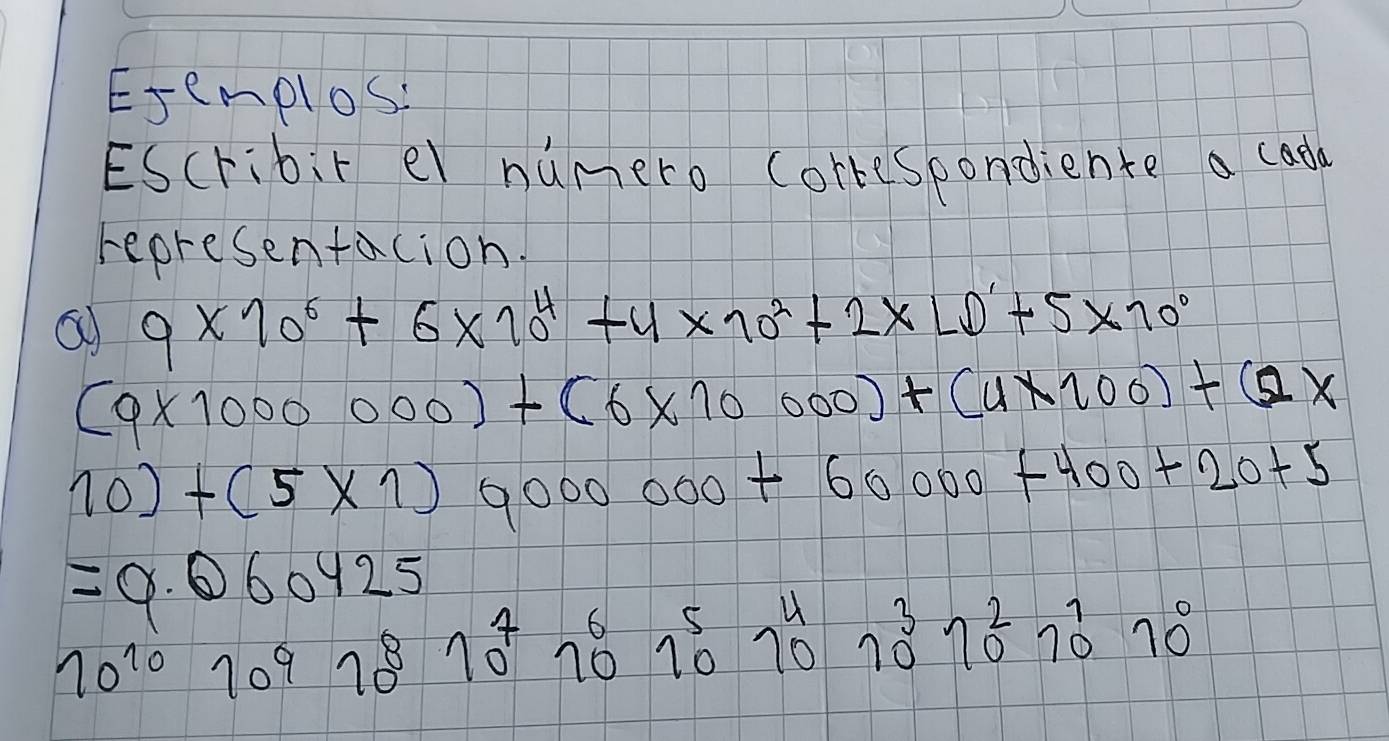 Ejemplos:
Escribir el número correspondiente a cada
representacion.
a) 9 x 10⁶ + 6 x 10⁴ + 4 x 10² + 2 x 10¹ + 5 x 10⁰
(9 x 1000 000) + (6 x 10 000) + (4 x 100) + (2 x
10) + (5 x 1) 9000 000 + 60 000 + 400 + 20 + 5
= 9.060425
10¹⁰ 10⁹ 10⁸ 10⁷ 10⁶ 10⁵ 10⁴ 10³ 10² 10¹ 10⁰